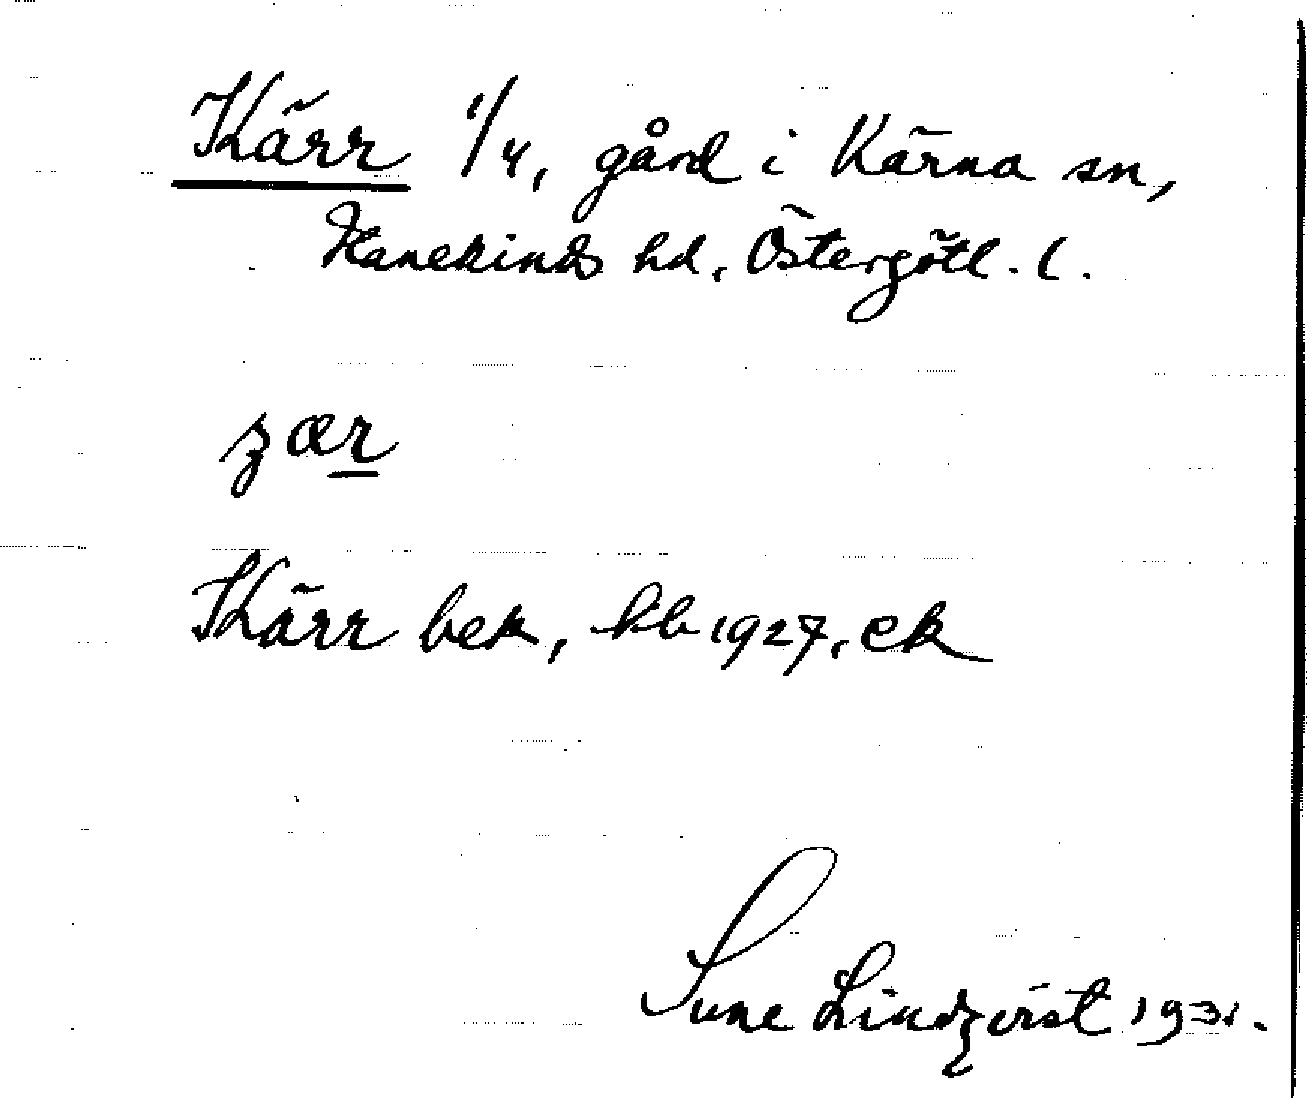 Kärr 1/4, gård i Kärna sn,
Hanekinds hd, Östergötl. l.
ʒær
Kärr bek, kb 1927, ek
Sune Lindqvist 1931.